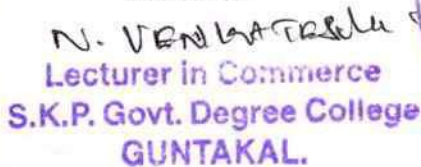 N. VENKATESulu
Lecturer in Commerce
S.K.P. Govt. Degree College
GUNTAKAL.